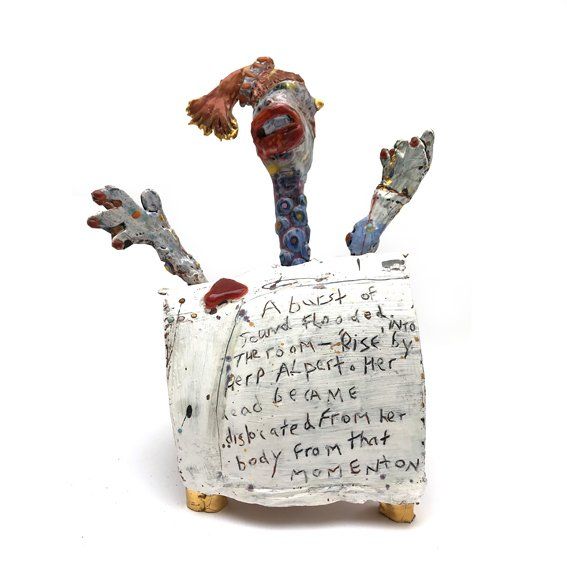 A burst of
sound flooded INTO
THE room — RISE by
Herp ALpert. Her
head bECAME
dislocated From her
body From that
MOMENT ON